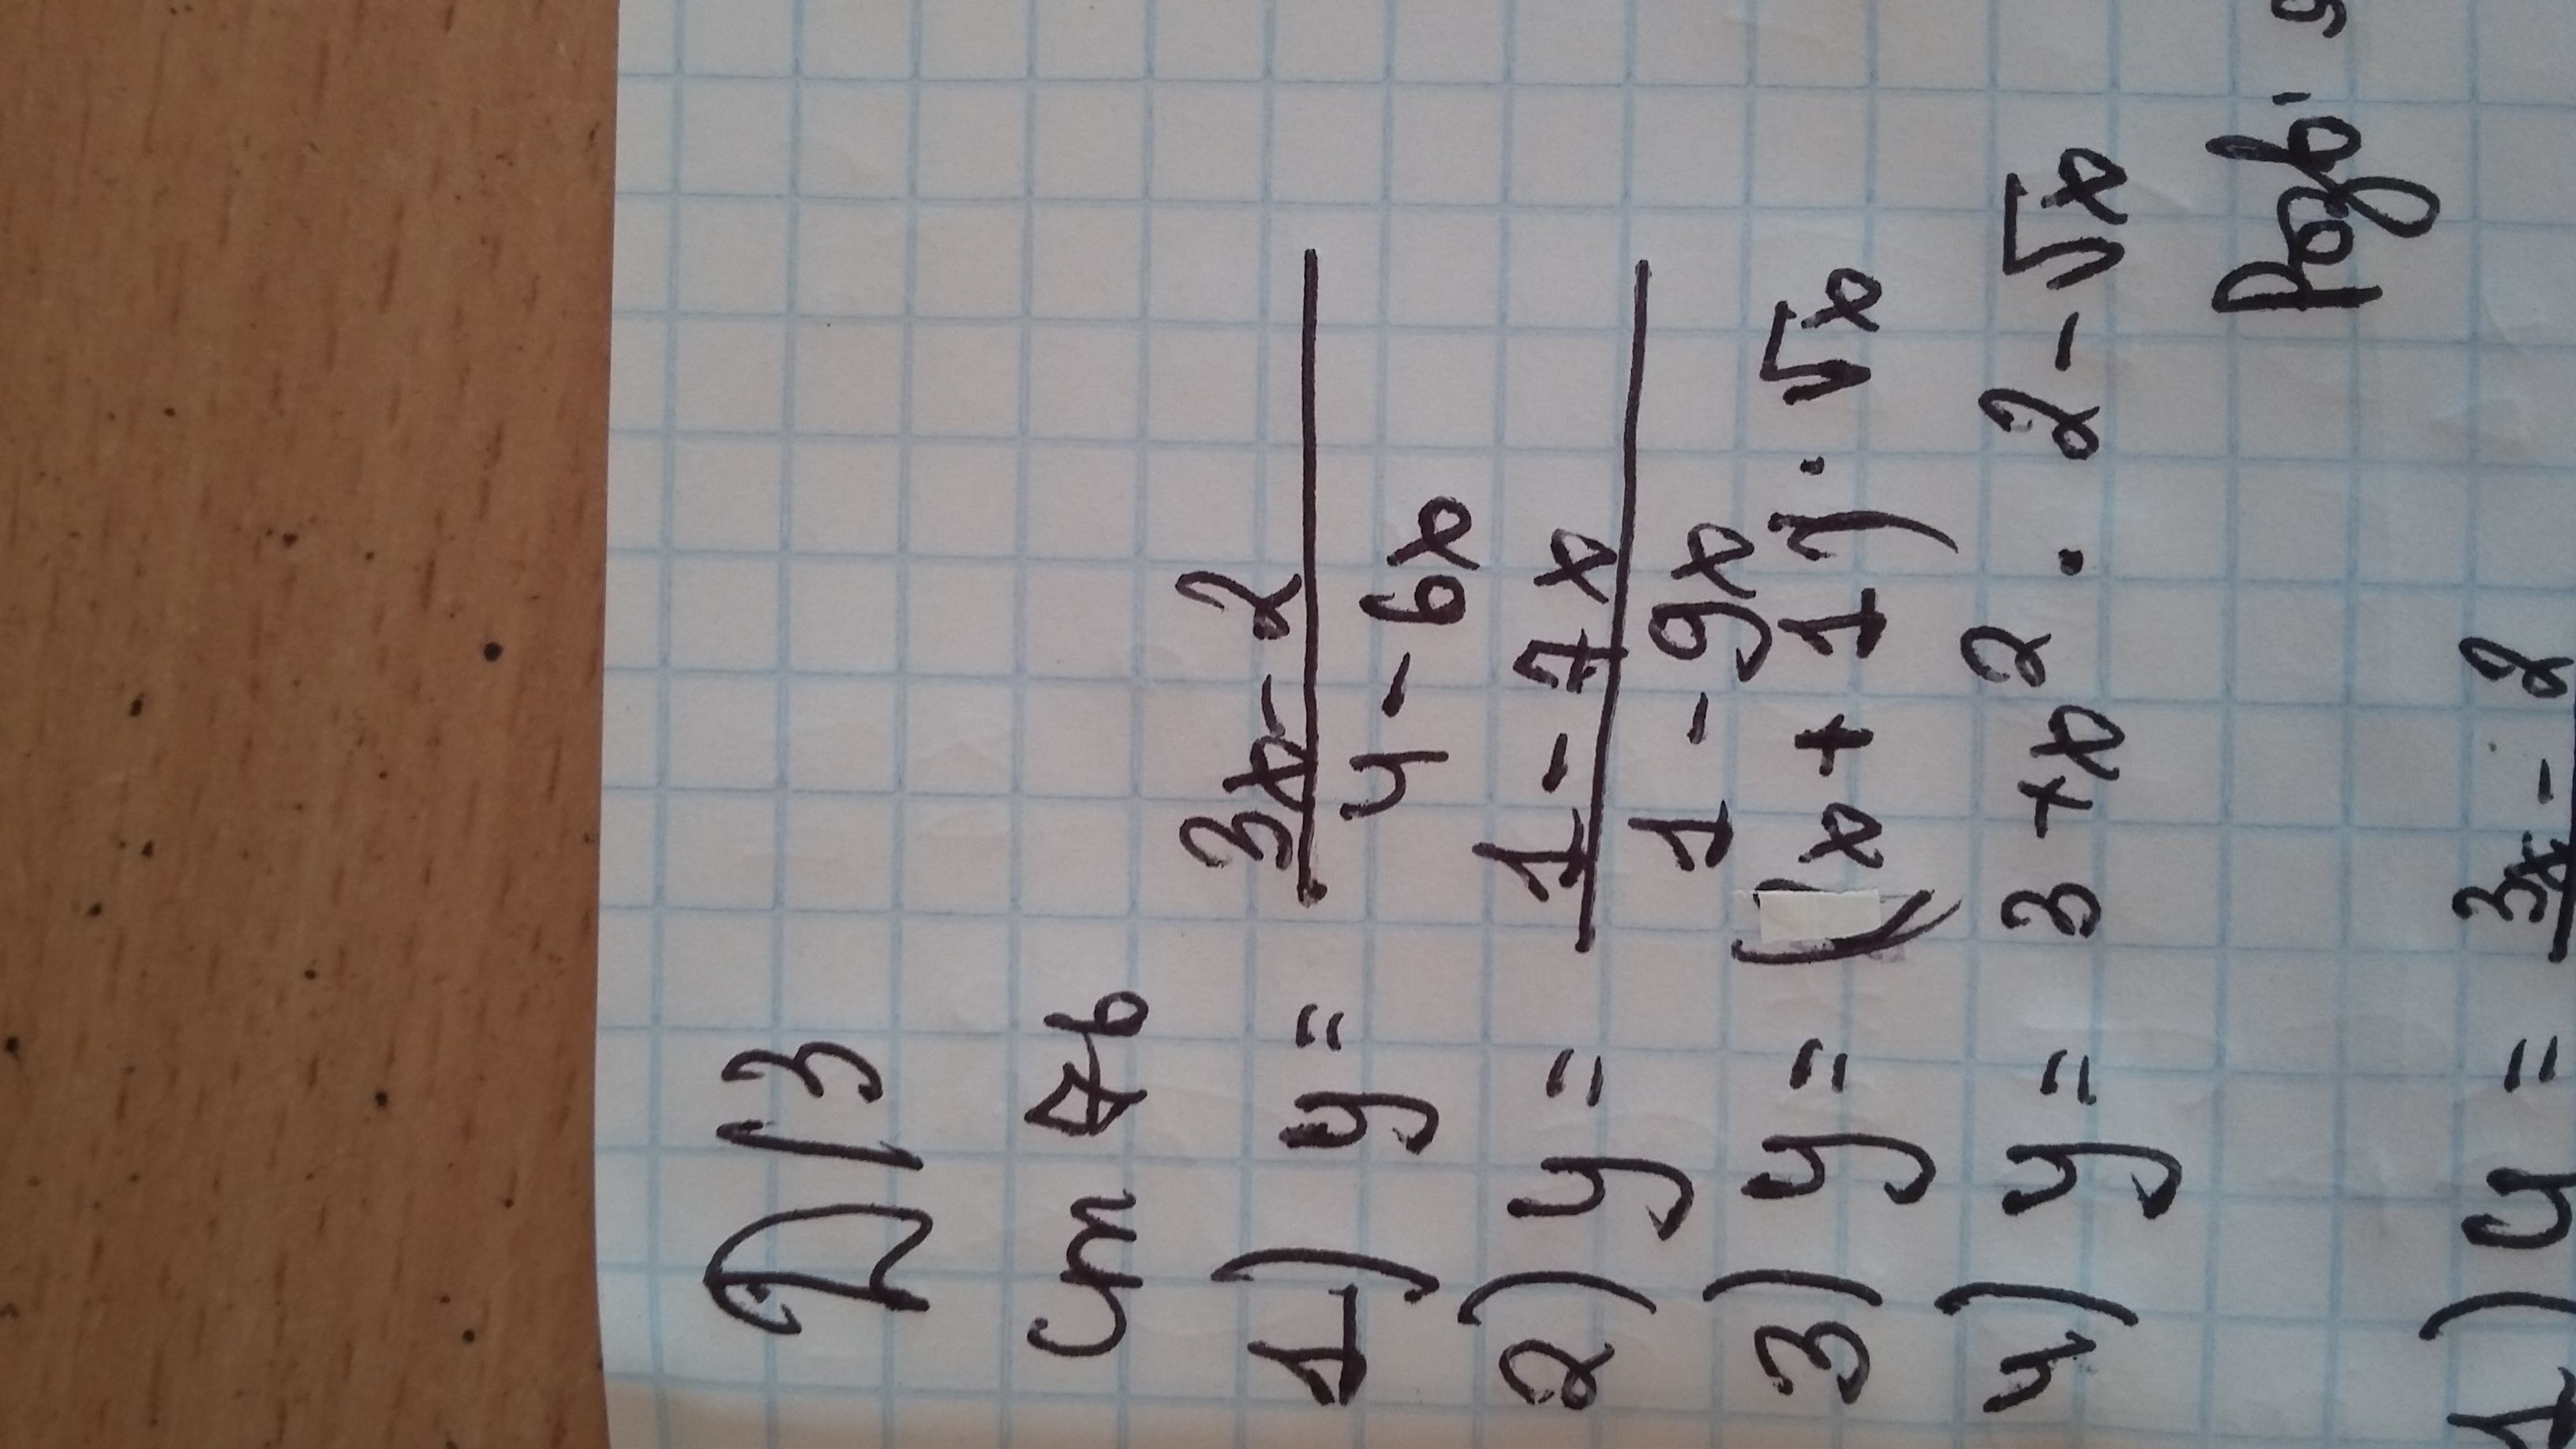 Д/З
ст 76
1) y = 3x - 2
4 - 6x
2) y = 1 - 7x
1 - 9x
3) y = (x + 1) · √x
4) y = 3 + x² · 2 - √x
Розв'
1) y = 3x - 2